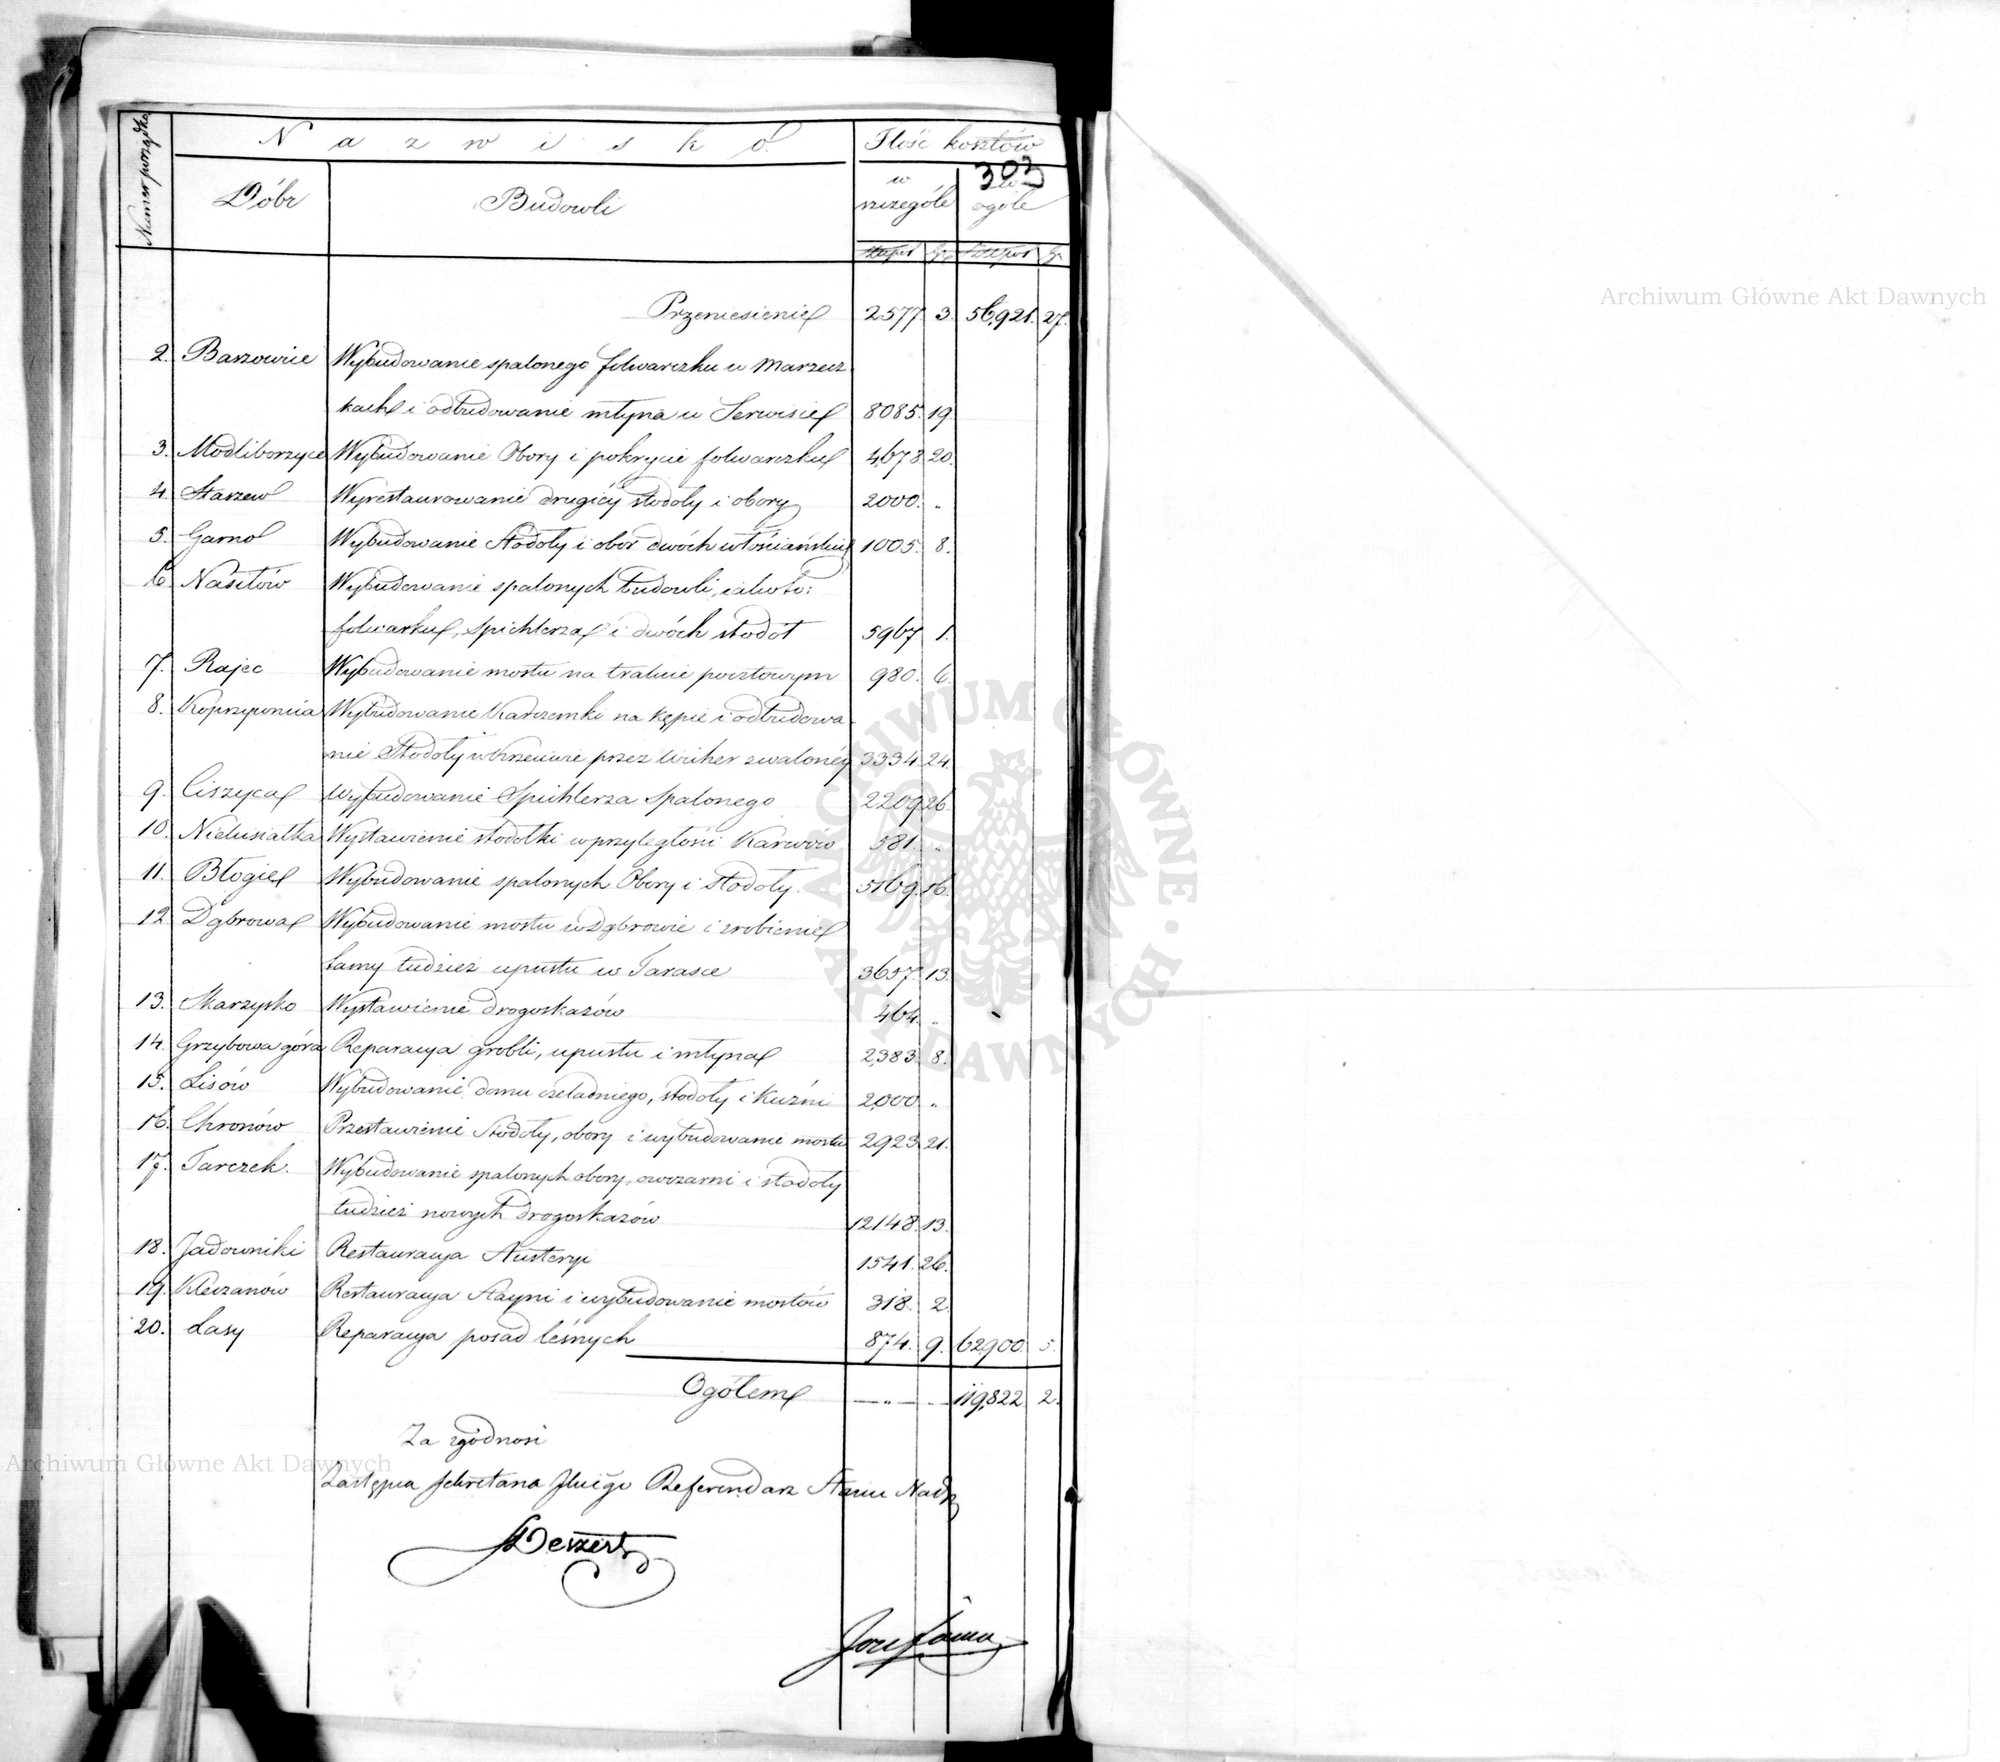 Numer porządko.
Nazwisko
Ilość kosztów
303
Dóbr
Budowli
w szczególe
w ogóle
Złł. pol. Gr. Złł. pol. Gr.
Przeniesienie 2577. 3. 56,921. 27.
2. Baszowice Wybudowanie spalonego folwarczku w Marzecz-
kach i odbudowanie młyna w Serwisie 8085. 19.
3. Modliborzyce Wybudowanie Obory i pokrycie folwarczku 4,678 20.
4. Starzew Wyrestaurowanie drugiéy stodoły i obory 2000. „
5. Garno Wybudowanie Stodoły i obór dwóch włościańskich 1005. 8.
6. Nasiłów Wybudowanie spalonych budowli, iakoto:
folwarku, Spichlerza i dwóch stodół 5967. 1.
7. Rajec Wybudowanie mostu na trakcie pocztowym 980. 6.
8. Koprzywnica Wybudowanie Karczemki na kępie i odbudowa-
nie Stodoły w Krzcinie przez wicher zwalonéy 3334. 24.
9. Ciszyca Wybudowanie Spichlerza Spalonego 2209. 26.
10. Nietusiałka Wystawienie stodółki w przyległości Karwów 581. „
11. Błogie Wybudowanie spalonych Obory i stodoły. 5169. 16.
12. Dąbrowa Wybudowanie mostu w Dąbrowie i zrobienie
tamy tudzież upustu w Tarasce 3657. 13.
13. Skarzysko Wystawienie drogoskazów 464. „
14. Grzybowa góra Reparacya grobli, upustu i młyna 2,383. 8.
15. Lisów Wybudowanie domu czeladniego, stodoły i kuźni 2,000. „
16. Chronów Przestawienie Stodoły, obory i wybudowanie mostu 2,923. 21.
17. Tarczek. Wybudowanie spalonych obory, owczarni i stodoły
tudzież nowych drogoskazów 12148. 13.
18. Jadowniki Restauracya Austeryi 1541. 26.
19. Kleczanów Restauracya Stayni i wybudowanie mostów 318. 2.
20. Lasy Reparacya posad leśnych 874. 9. 62,900. 5.
Ogółem „ 119,822 2.
Za zgodność
Zastępca Sekretarza Referendarz Stanu Nadz
Deszert
Józef
Archiwum Główne Akt Dawnych
Archiwum Główne Akt Dawnych
ARCHIWUM GŁÓWNE AKT DAWNYCH